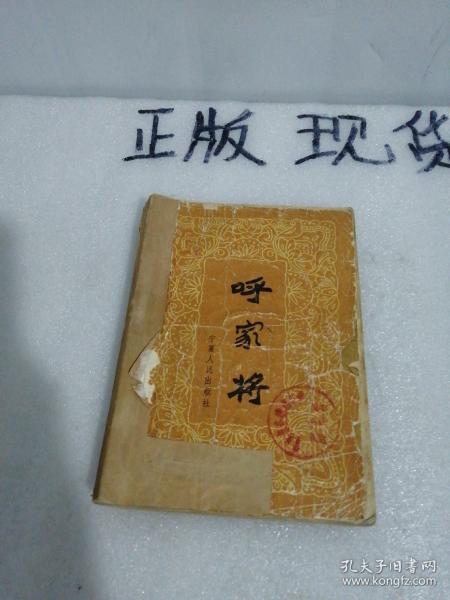 正版 现货
呼家将
宁夏人民出版社
孔夫子旧书网
www.kongfz.com